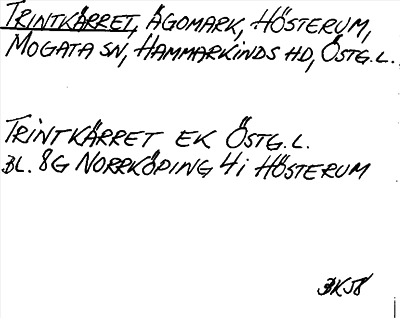 TRINTKÄRRET, ÄGOMARK, HÖSTERUM,
MOGATA SN, HAMMARKINDS HD, ÖSTG.L.
TRINTKÄRRET EK ÖSTG.L.
BL. 8G NORRKÖPING 4i HÖSTERUM